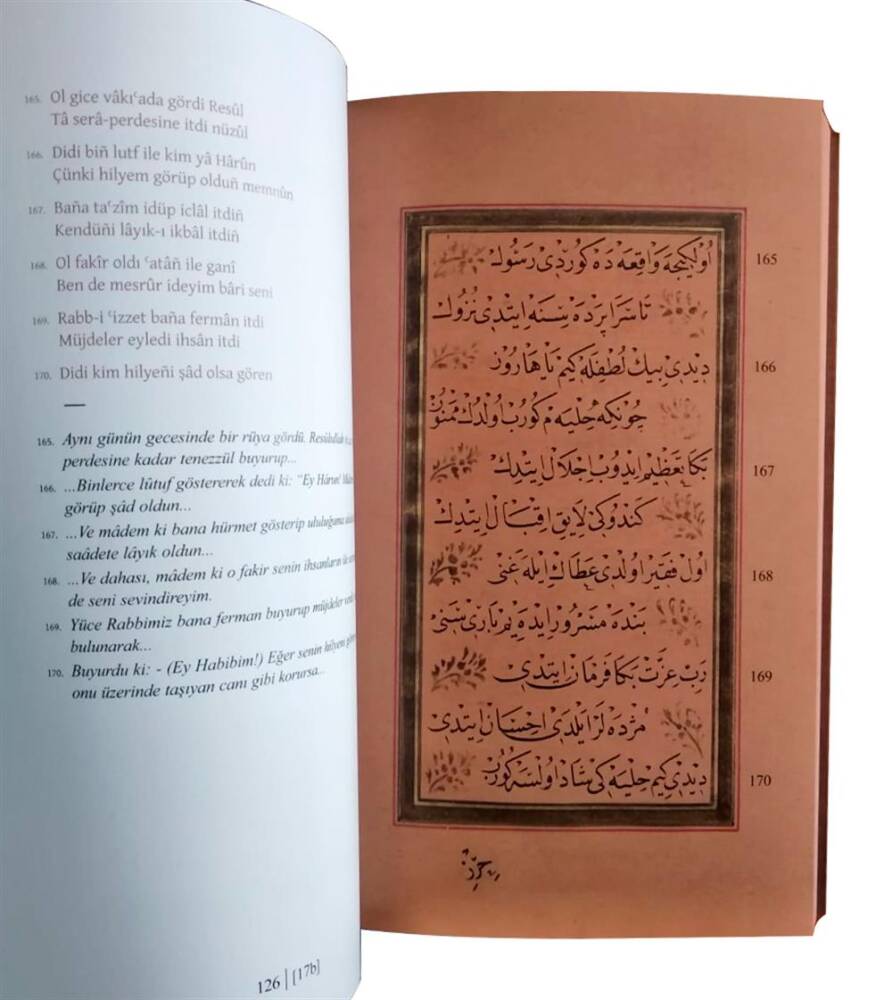 165. Ol gice vâkıʿada gördi Resûl
Tâ serâ-perdesine itdi nüzûl
166. Didi biñ lutf ile kim yâ Hârûn
Çünki hilyem görüp olduñ memnûn
167. Baña taʿzîm idüp iclâl itdiñ
Kendüñi lâyık-ı ikbâl itdiñ
168. Ol fakîr oldı ʿatâñ ile ganî
Ben de mesrûr ideyim bâri seni
169. Rabb-i ʿizzet baña fermân itdi
Müjdeler eyledi ihsân itdi
170. Didi kim hilyeñi şâd olsa gören
165. Aynı günün gecesinde bir rüya gördü. Resûlullah
perdesine kadar tenezzül buyurup...
166. ...Binlerce lûtuf göstererek dedi ki: "Ey Hârun!
görüp şâd oldun...
167. ...Ve mâdem ki bana hürmet gösterip ululuğuma
saâdete lâyık oldun...
168. ...Ve dahası, mâdem ki o fakir senin ihsanların ile
de seni sevindireyim.
169. Yüce Rabbimiz bana ferman buyurup müjdeler
bulunarak...
170. Buyurdu ki: - (Ey Habibim!) Eğer senin hilyeni
onu üzerinde taşıyan canı gibi korursa...
126 | [17b]
اول كیجه واقعه ده كوردی رسول 165
تا سرا پرده سنه ایتدی نزول
دیدی بیك لطفله كیم یا هارون 166
چونكه حلیه م كوروب اولدك ممنون
بكا تعظیم ایدوب اجلال ایتدك 167
كندوكی لایق اقبال ایتدك
اول فقیر اولدی عطاك ایله غنی 168
بنده مسرور ایده یم باری سنی
رب عزت بكا فرمان ایتدی 169
مژده لر ایلدی احسان ایتدی
دیدی كیم حلیه كی شاد اولسه كورن 170